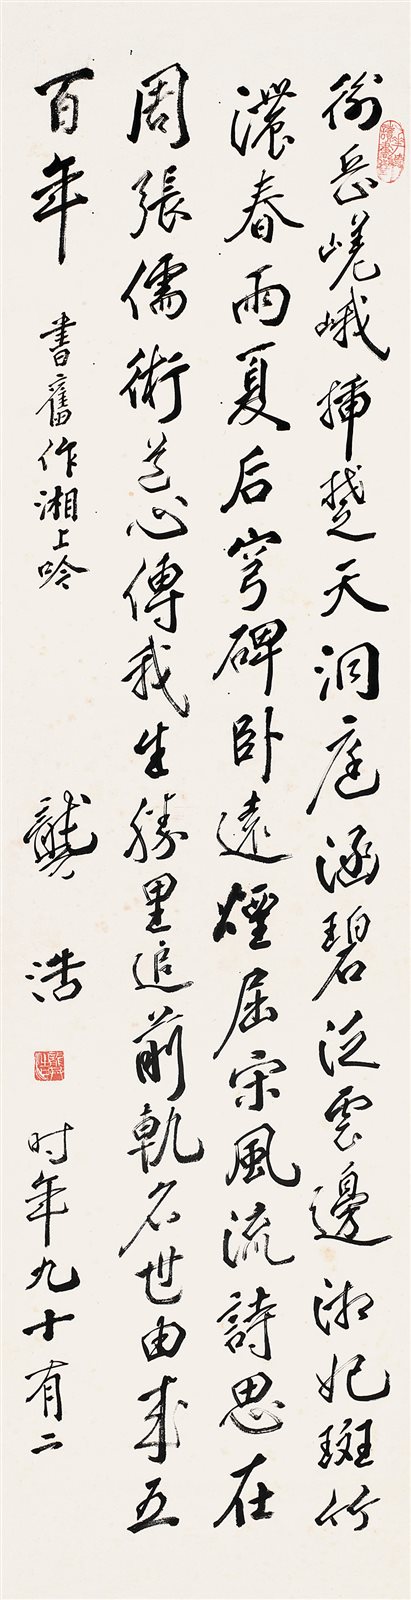 衡岳嵯峨插楚天洞庭涵碧泛雲邊湘妃斑竹
濃春雨夏后穹碑卧遠煙屈宋風流詩思在
周張儒術道心傳我生勝里追前軌名世由來五
百年 書舊作湘上吟 龔浩 时年九十有二